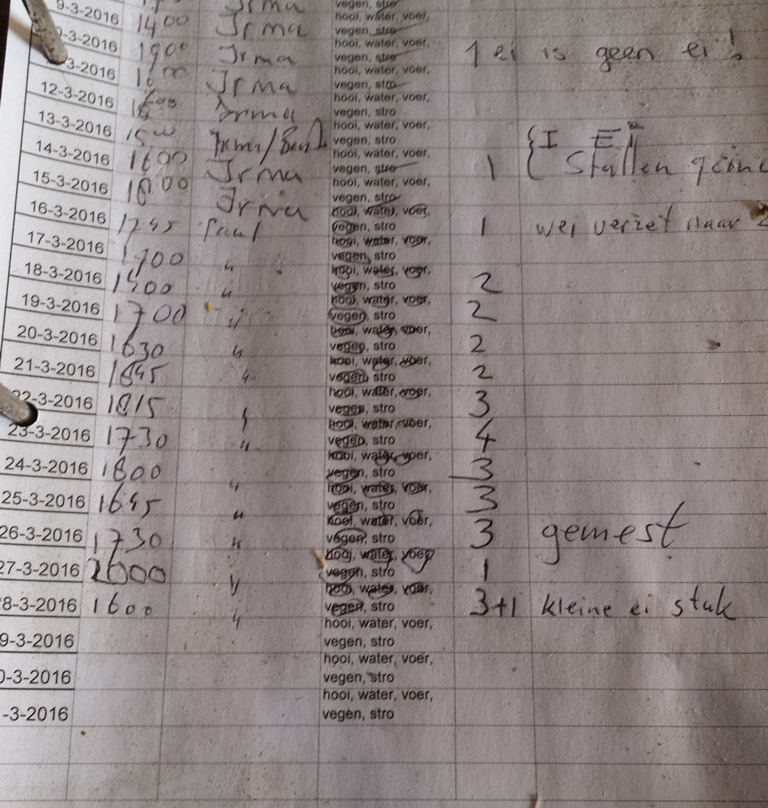 9-3-2016 1400 Irma hooi, water, voer, vegen, stro
0-3-2016 1900 Irma hooi, water, voer, vegen, stro 1 ei is geen ei!
-3-2016 1600 Irma hooi, water, voer, vegen, stro
12-3-2016 Irma hooi, water, voer, vegen, stro
13-3-2016 1500 Irma/ hooi, water, voer, vegen, stro
14-3-2016 1600 Irma hooi, water, voer, vegen, stro 1 Stallen
15-3-2016 1800 Irma hooi, water, voer, vegen, stro
16-3-2016 1745 Paul hooi, water, voer, vegen, stro 1 wei verzet naar 2
17-3-2016 1700 " hooi, water, voer, vegen, stro
18-3-2016 " hooi, water, voer, vegen, stro 2
19-3-2016 1700 " hooi, water, voer, vegen, stro 2
20-3-2016 1630 " hooi, water, voer, vegen, stro 2
21-3-2016 1645 " hooi, water, voer, vegen, stro 2
22-3-2016 1815 " hooi, water, voer, vegen, stro 3
23-3-2016 1730 " hooi, water, voer, vegen, stro 4
24-3-2016 1800 " hooi, water, voer, vegen, stro 3
25-3-2016 1645 " hooi, water, voer, vegen, stro 3
26-3-2016 1730 " hooi, water, voer, vegen, stro 3 gemest
27-3-2016 2000 " hooi, water, voer, vegen, stro 1
8-3-2016 1600 " hooi, water, voer, vegen, stro 3+1 kleine ei stuk
9-3-2016 hooi, water, voer, vegen, stro
0-3-2016 hooi, water, voer, vegen, stro
-3-2016 hooi, water, voer, vegen, stro